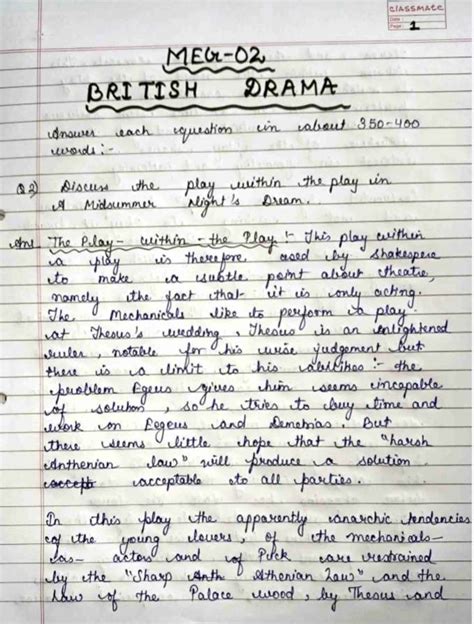 CLASSMATE
Date :
Page : 1
MEG-02
BRITISH DRAMA
Answer each question in about 350-400
words:-
Q2) Discuss the play within the play in
A Midsummer Night's Dream.
Ans The Play- within - the Play :- This play within
a play is therefore, used by Shakespere
to make a subtle point about theatre,
namely the fact that it is only acting.
The Mechanicals like to perform a play
at Theseus's wedding. Theseus is an enlightened
ruler, notable for his wise judgement but
there is a limit to his abilities :- the
problem Egeus gives him seems incapable
of solution, so he tries to buy time and
work on Egeus and Demetrius. But
there seems little hope that the "harsh
Anthenian law" will produce a solution
accept acceptable to all parties.
In this play the apparently anarchic tendencies
of the young lovers, of the mechanicals-
as- actors and of Puck are restrained
by the "Sharp Anth Athenian Law" and the
Law of the Palace wood, by Theseus and